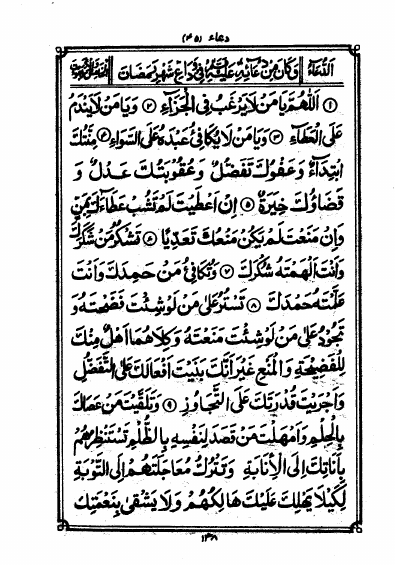 دعاء (۴۵)
الدُّعَاءُ وَكَانَ مِنْ دُعَائِهِ عَلَيْهِ السَّلَامُ فِي وَدَاعِ شَهْرِ رَمَضَانَ
۱ اَللّٰهُمَّ يَا مَنْ لَا يَرْغَبُ فِي الْجَزَآءِ ۲ وَيَا مَنْ لَا يَنْدَمُ
عَلَى الْعَطَآءِ ۳ وَيَا مَنْ لَا يُكَافِئُ عَبْدَهُ عَلَى السَّوَاءِ ۴ مِنَّتُكَ
ابْتِدَآءٌ وَعَفْوُكَ تَفَضُّلٌ وَعُقُوبَتُكَ عَدْلٌ وَ
قَضَاؤُكَ خِيَرَةٌ ۵ اِنْ اَعْطَيْتَ لَمْ تَشُبْ عَطَاءَكَ بِمَنٍّ
وَاِنْ مَنَعْتَ لَمْ يَكُنْ مَنْعُكَ تَعَدِّيًا ۶ تَشْكُرُ مَنْ شَكَرَكَ
وَاَنْتَ اَلْهَمْتَهُ شُكْرَكَ ۷ وَتُكَافِئُ مَنْ حَمِدَكَ وَاَنْتَ
عَلَّمْتَهُ حَمْدَكَ ۸ تَسْتُرُ عَلٰى مَنْ لَوْ شِئْتَ فَضَحْتَهُ وَ
تَجُودُ عَلٰى مَنْ لَوْ شِئْتَ مَنَعْتَهُ وَكِلَاهُمَا اَهْلٌ مِنْكَ
لِلْفَضِيحَةِ وَالْمَنْعِ غَيْرَ اَنَّكَ بَنَيْتَ اَفْعَالَكَ عَلَى التَّفَضُّلِ
وَاَجْرَيْتَ قُدْرَتَكَ عَلَى التَّجَاوُزِ ۹ وَتَلَقَّيْتَ مَنْ عَصَاكَ
بِالْحِلْمِ وَاَمْهَلْتَ مَنْ قَصَدَ لِنَفْسِهِ بِالظُّلْمِ تَسْتَنْظِرُهُمْ
بِاَنَاتِكَ اِلَى الْاِنَابَةِ وَتَتْرُكُ مُعَاجَلَتَهُمْ اِلَى التَّوْبَةِ
لِكَيْلَا يَهْلِكَ عَلَيْكَ هَالِكُهُمْ وَلَا يَشْقٰى بِنِعْمَتِكَ